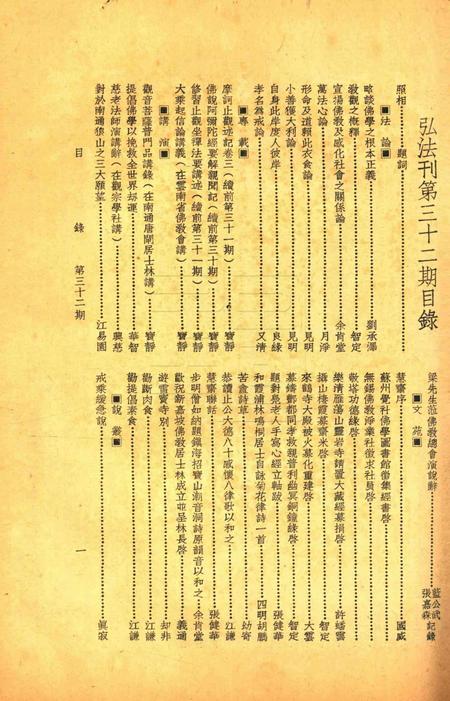 弘法刊第三十二期目錄
照相 題詞
■法論■
略談佛學之根本正義 劉承澤
教觀之概釋 智定
宣揚佛教及感化社會之關係論 余肯堂
萬法心論 月淨
形命及道賴此衣食論 見明
小善獲大利論 見明
自身此岸度人彼岸 良緣
孝名為戒論 又清
■專載■
摩訶止觀述記卷三（續前第三十一期） 寶靜
佛說阿彌陀經要解親聞記（續前第三十期） 寶靜
修習止觀坐禪法要講述（續前第三十一期） 寶靜
大乘起信論講義（在雲南省佛教會講） 寶靜
■講演■
觀音菩薩普門品講錄（在南通唐閘居士林講） 寶靜
提倡佛學以挽救全世界劫運 華智
慈老法師演講辭（在觀宗學社講） 興慈
對於南通狼山之三大願望 江易園
目 錄 第三十二期
梁先生蒞佛教總會演說辭 藍公武 張嘉森記錄
■文苑■
慧齋序 國威
蘇州覺社佛學圖書館徵集經書啓
無錫佛教淨業社徵求社員啓
報塔功德緣啓
樂清雁蕩山靈岩寺請置大藏經募捐啓 許蟠雲
攝山棲霞募齋米啓 智定
來鶴寺大殿被火募化重建啓 大雲
募鑄鄷都同孝救親普利幽冥銅鐘緣啓 智定
題對凫老人手寫心經立軸跋 張健華
和霞浦林鳴桐居士自詠菊花律詩一首 四明胡鵬
苦盦詩草 幼寄
恭讀止公大德八十感懷八律歌以和之 江謙
慧齋聯話 張健華
步明僧如納題鎮海招寶山潮音洞詩原韻音以和之 余肯堂
歡祝新嘉坡佛教居士林成立並呈林長啓 義通
遊雪竇寺别 却非
勸斷肉食 江謙
勸提倡素食 江謙
■說叢■
戒乘緩急說 眞寂
一